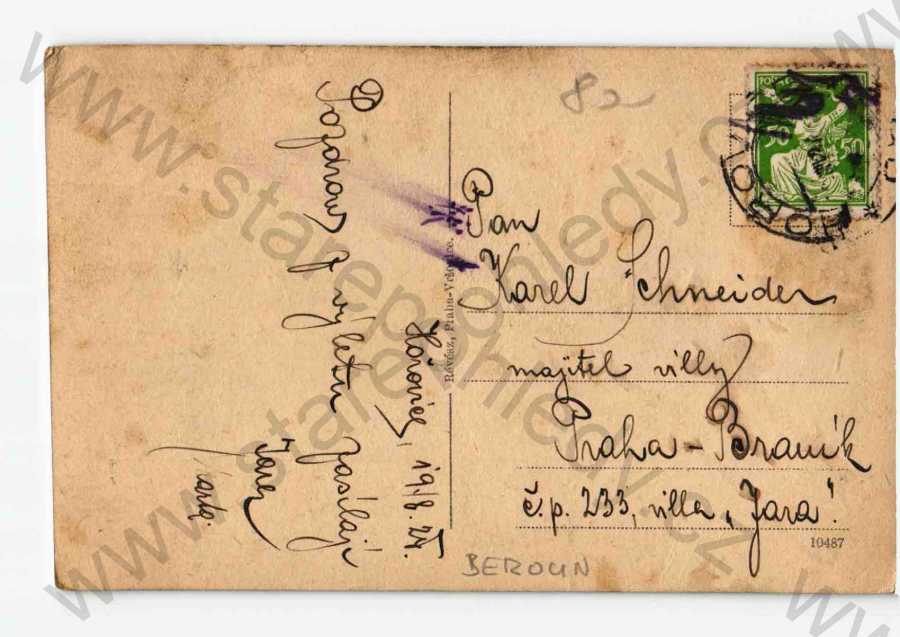 Hořovice, 19/8. 25.
Pozdrav z výletu zasílají
82
Pan
Karel Schneider
majitel villy
Praha-Braník
č.p. 233, villa „Jara".
10487
BEROUN
Révész, Praha-Vršovice.
50
HOŘOV
www.starepohledy.cz